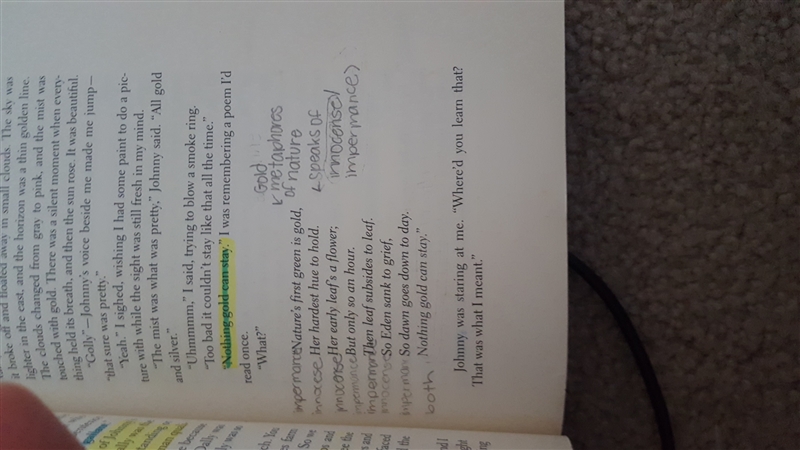 it broke off and floated away in small clouds. The sky was
lighter in the east, and the horizon was a thin golden line.
The clouds changed from gray to pink, and the mist was
touched with gold. There was a silent moment when every-
thing held its breath, and then the sun rose. It was beautiful.
"Golly"—Johnny's voice beside me made me jump—
"that sure was pretty."
"Yeah." I sighed, wishing I had some paint to do a pic-
ture with while the sight was still fresh in my mind.
"The mist was what was pretty," Johnny said. "All gold
and silver."
"Uhmmmm," I said, trying to blow a smoke ring.
"Too bad it couldn't stay like that all the time."
"Nothing gold can stay." I was remembering a poem I'd
read once.
"What?"
Gold
metaphores
of nature
speaks of
innocense/
impermance)
impermance Nature's first green is gold,
innocese Her hardest hue to hold.
innocense Her early leaf's a flower;
impermance But only so an hour.
imperman Then leaf subsides to leaf.
innocense So Eden sank to grief,
imperman So dawn goes down to day.
both Nothing gold can stay."
Johnny was staring at me. "Where'd you learn that?
That was what I meant."